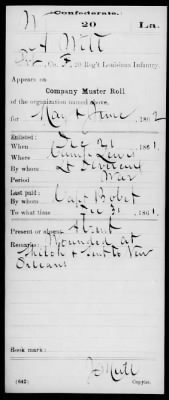 Confederate.
W 20 La.
A Witt
Pvt, Co. F, 20 Reg't Louisiana Infantry.
Appears on
Company Muster Roll
of the organization named above,
for May & June, 1862
Enlisted:
When Dec 21, 1861.
Where Camp Lewis
By whom Lt
Period War
Last paid:
By whom Capt Bobet
To what time Dec 31, 1861.
Present or absent Absent
Remarks: Wounded at
Shiloh & sent to New
Orleans
Book mark:
(642) Copyist.